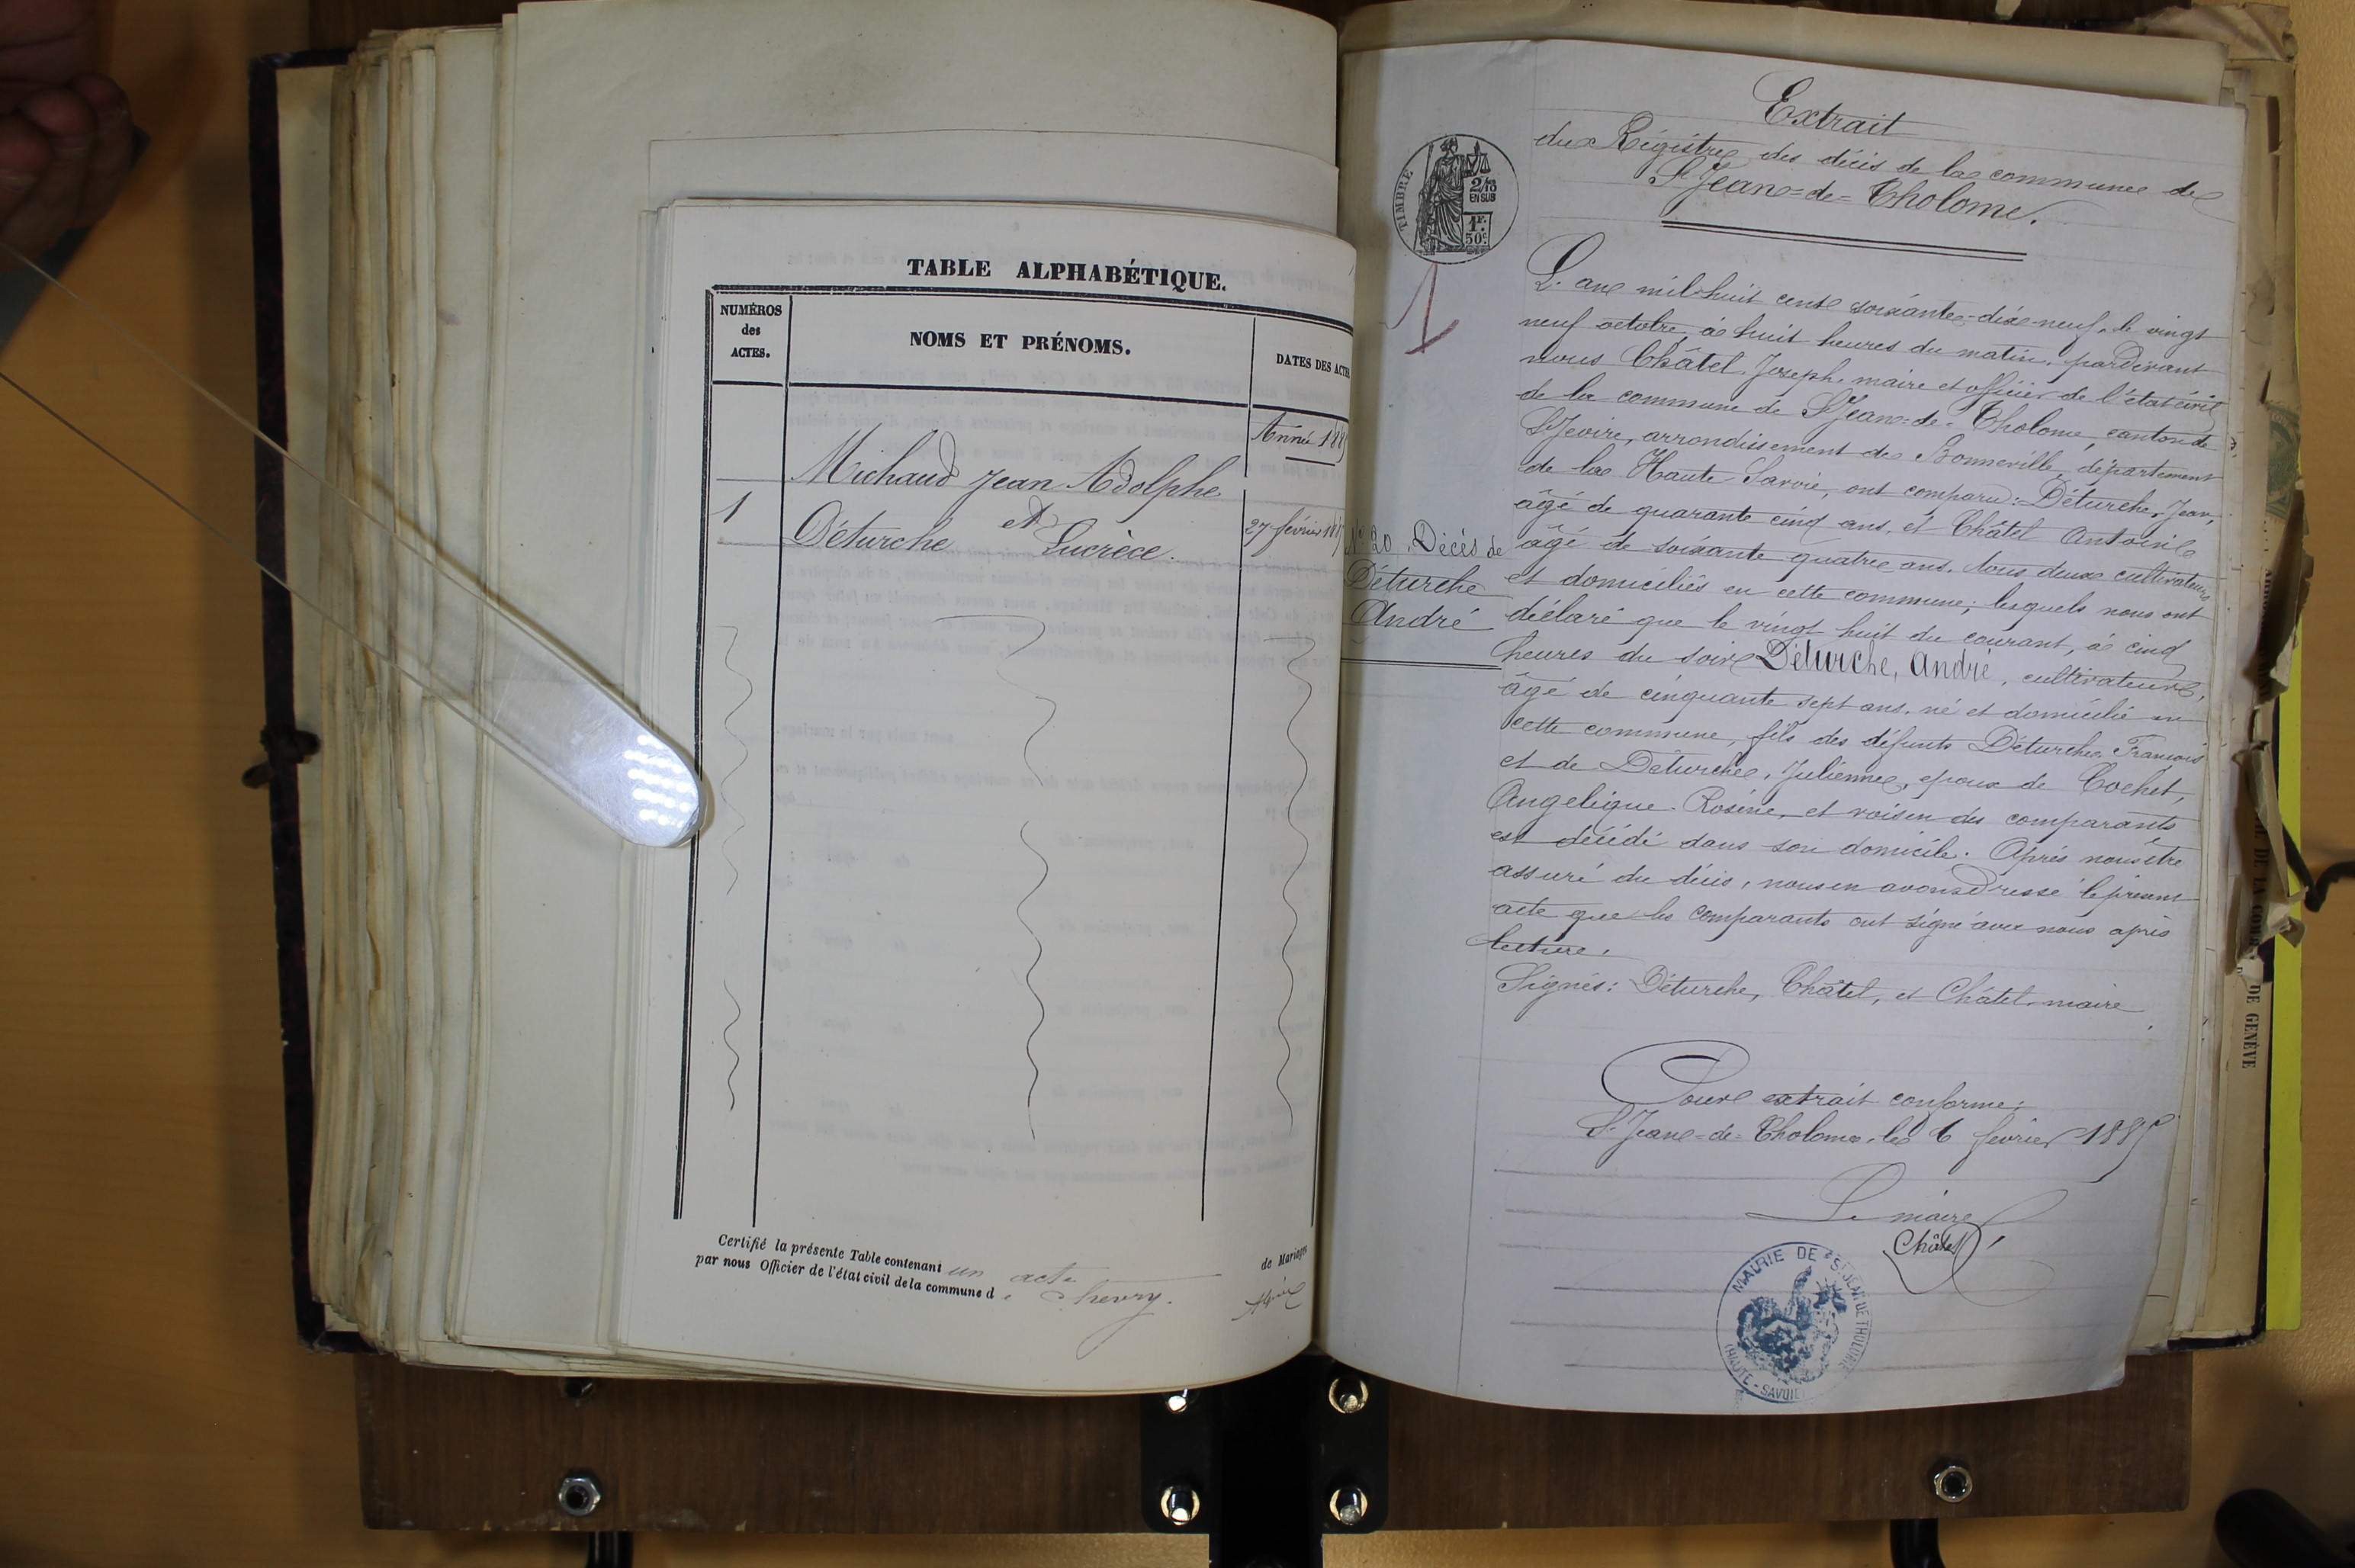 TABLE ALPHABÉTIQUE.
NUMÉROS
des
ACTES.
NOMS ET PRÉNOMS.
DATES DES ACTES
Année 188
Michaud Jean Adolphe
1
et
27 février 188
Déturche Lucrèce.
Certifié la présente Table contenant un acte de Mariage
par nous Officier de l'état civil de la commune d
Extrait
du Régistre des décès de la commune de
St Jean=de=Tholome.
TIMBRE
2/10
EN SUS
1F.
50c.
1
L'an mil-huit cent soixante-dix-neuf, le vingt
neuf octobre, à huit heures du matin, pardevant
nous Châtel Joseph maire et officier de l'état civil
de la commune de St Jean=de=Tholome, canton de
St Jeoire, arrondissement de Bonneville, département
de la Haute-Savoie, ont comparu: Déturche, Jean,
âgé de quarante cinq ans, et Châtel Antoine
âgé de soixante quatre ans, tous deux cultivateurs
et domiciliés en cette commune; lesquels nous ont
déclaré que le vingt huit du courant, à cinq
heures du soir Déturche, André, cultivateur,
âgé de cinquante sept ans, né et domicilié en
cette commune, fils des défunts Déturche François
et de Déturche, Julienne, époux de Cochet,
Angelique Rosine, et voisin des comparants
est décédé dans son domicile. Après nous être
assuré du décès, nous en avons dressé le présent
acte que les comparants ont signé avec nous après
lecture.
Signés: Déturche, Châtel, et Châtel maire
No 20. Décès de
Déturche
André
Pour extrait conforme:
St Jean=de=Tholome, le 6 février 188
Le maire
Châtel
MAIRIE DE St JEAN DE THOLOME
(HAUTE-SAVOIE)
DE LA COUR
DE GENÈVE